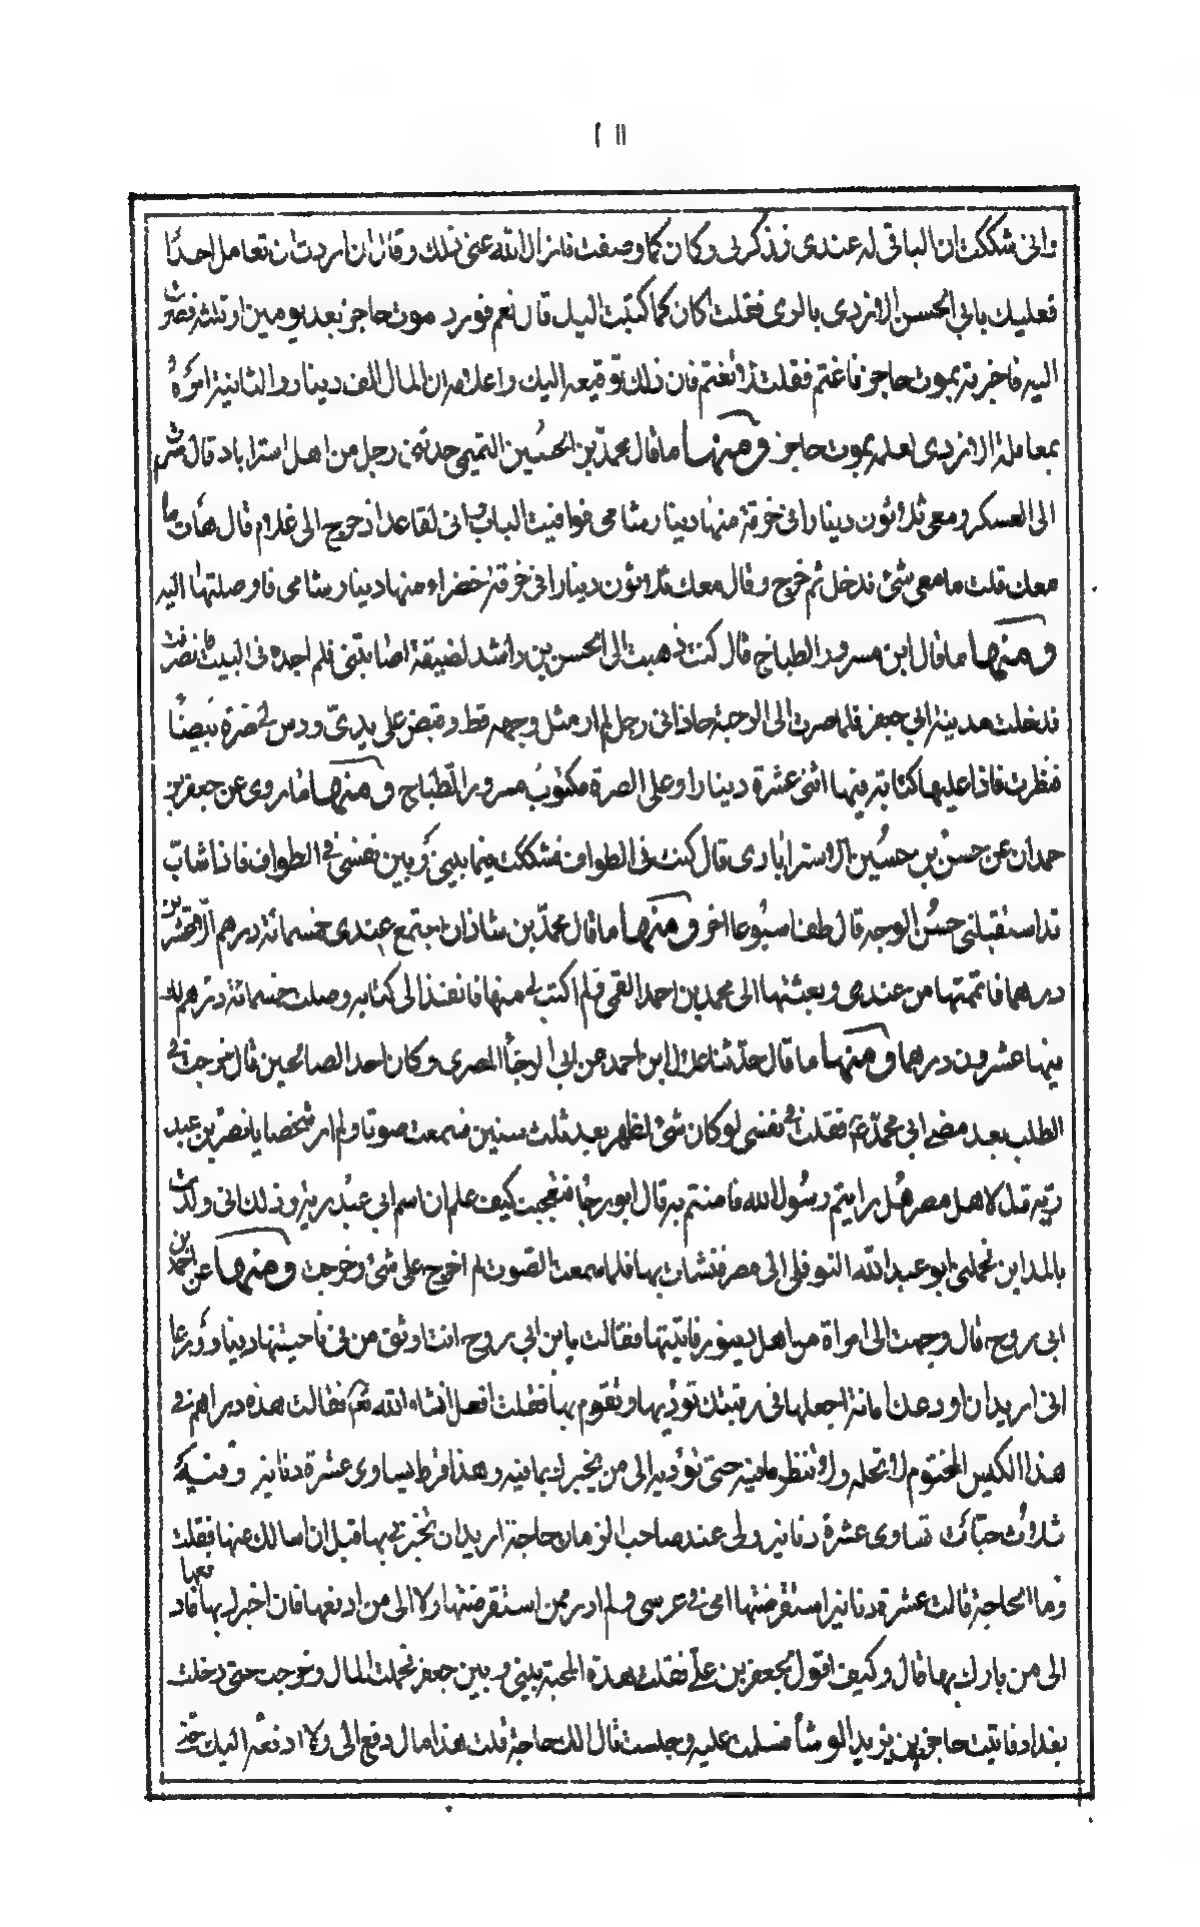 ٢١١
وانى شككت ان الباقى له عندى فذكر لى وكان كما وصفت فازال الله عنى ذلك وقال ان اردت ان تعامل احدًا
فعليك بابي الحسن الازدى بالرى فقلت اكان كما كتبت اليك قال نعم فورد موت حاجز بعد يومين او ثلثه فصرت
اليه فاخبرته بموت حاجز فاغتم فقلت لا تغتم فان ذلك توقيعه اليك واعلامه ان المال الف دينار والثانية امره
بمعاملة الازدى لعلمه بموت حاجز ومنها ما قال محمد بن الحسين التميمى حدثنى رجل من اهل استراباد قال صرت
الى العسكر ومعى ثلاثون دينارا فى خرقة منها دينار شامى فوافيت الباب انى لقاعد اذ خرج الى غلام قال هات ما
معك قلت ما معى شئ فدخل ثم خرج وقال معك ثلاثون دينارا فى خرقة خضراء منها دينار شامى فاوصلتها اليه
ومنها ما قال ابن مسرور الطباخ قال كنت ذهبت الى الحسن بن راشد لضيقة اصابتنى فلم اجده فى البيت فانصرفت
فدخلت مدينة ابي جعفر فلما صرت الى الرحبة حاذانى رجل لم ار مثل وجهه قط وقبض على يدى ودس لى صرة بيضا
فنظرت فاذا عليها كتابة فيها اثنى عشرة دينارا وعلى الصرة مكتوب مسرور الطباخ ومنها ما روى عن جعفر بن
حمدان عن حسن بن حسين الاسترابادى قال كنت فى الطواف فشككت فيما بينى وبين نفسى فى الطواف فاذا شاب
قد استقبلنى حسن الوجه قال طف اسبوعا اخر ومنها ما قال محمد بن شاذان اجتمع عندى خمسمائة درهم الا عشرين
درهما فاتممتها من عندى وبعثتها الى محمد بن احمد القمى ولم اكتب لى منها فانفذ الى كتابه وصلت خمسمائة درهم لك
فيها عشرون درهما ومنها ما قال حدثنا علان ابن احمد عن ابى الرجأ المصرى وكان احد الصالحين قال خرجت فى
الطلب بعد مضى ابى محمد ع فقلت فى نفسى لو كان شئ لظهر بعد ثلث سنين فسمعت صوتا ولم ار شخصا يا نصر بن عبد
ربه قل لاهل مصر هل رايتم رسول الله فامنتم به قال ابو رجا فتعجبت كيف علم ان اسم ابى عبد ربه وذلك انى ولدت
بالمداين فحملنى ابو عبد الله النوفلى الى مصر فنشات بها فلما سمعت الصوت لم اخرج على شئ وخرجت ومنها عن احمد بن
ابى روح قال وجهت الى امراة من اهل دينور فاتيتها فقالت يا بن ابى روح انت اوثق من فى ناحيتنا دينا وورعا
انى اريد ان اودعك امانة اجعلها فى رقبتك تؤديها وتقوم بها فقلت افعل انشاء الله تع فقالت هذه دراهم فى
هذا الكيس المختوم لا تحله ولا تنظر ما فيه حتى تؤديه الى من يخبرك بما فيه وهذا قرط يساوى عشرة دنانير وفيه
ثلاث حبات تساوى عشرة دنانير ولى عند صاحب الزمان حاجة اريد ان تخبرنى بها قبل ان اسالك عنها فقلت
وما الحاجة قالت عشرة دنانير استقرضتها امى فى عرسى ولم ادر ممن استقرضتها ولا الى من ادفعها فان اخبرك بها فادفعها
الى من يامرك بها قال وكيف اقول لجعفر بن على فقلت هذه المحبة بينى وبين جعفر فحملت المال وخرجت حتى دخلت
بغداد فاتيت حاجز بن يزيد الوشأ فسلمت عليه وجلست قال الك حاجة قلت هذا مال دفع الى ولا ادفعه اليك حتى